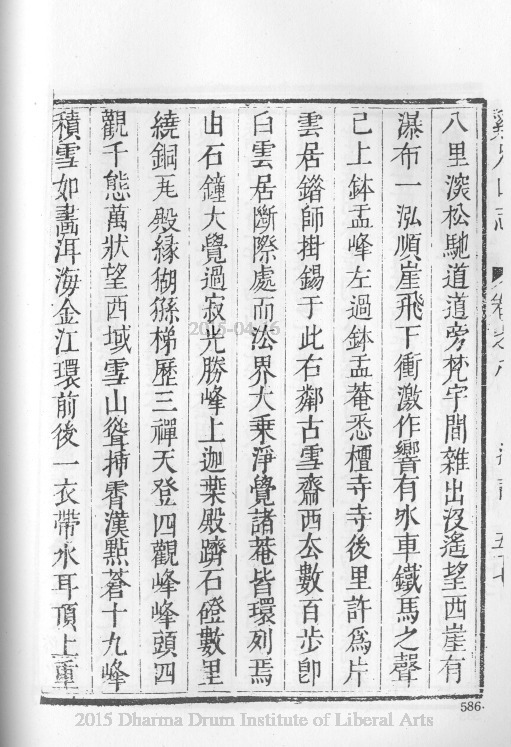 八里溪松馳道道旁梵宇間雜出沒遙望西崖有
瀑布一泓順崖飛下衝激作響有水車鐵馬之聲
已上鉢盂峰左過鉢盂菴悉檀寺寺後里許爲片
雲居鍇師掛錫于此右鄰古雪齋西去數百步卽
白雲居斷際處而㳂界大乘淨覺諸菴皆環列焉
由石鐘大覺過寂光勝峰上迦葉殿躋石磴數里
繞銅瓦殿緣猢猻梯歷三禪天登四觀峰峰頭四
觀千態萬狀望西域雪山聳揷霄漢點蒼十九峰
積雪如畫洱海金江環前後一衣帶水耳頂上重
586
2015-04-16
2015 Dharma Drum Institute of Liberal Arts